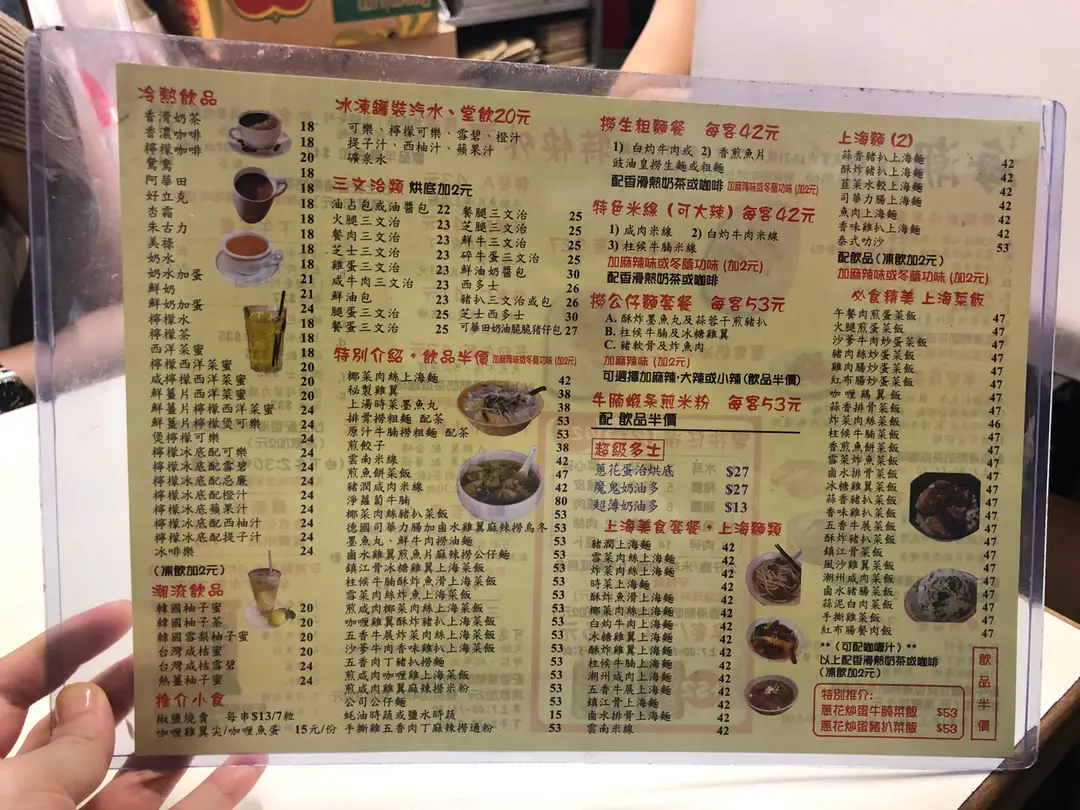 冷熱飲品
香滑奶茶 18
香濃咖啡 18
檸檬咖啡 20
鴛鴦 18
阿華田 18
好立克 18
杏霜 18
朱古力 18
美祿 18
奶水 18
奶水加蛋 21
鮮奶 21
鮮奶加蛋 24
檸檬水 18
檸檬茶 18
西洋菜蜜 18
檸檬西洋菜蜜 20
咸檸檬西洋菜蜜 20
鮮薑片西洋菜蜜 20
鮮薑片檸檬西洋菜蜜 24
鮮薑片檸檬煲可樂 24
煲檸檬可樂 24
檸檬冰底配可樂 24
檸檬冰底配雪碧 24
檸檬冰底配忌廉 24
檸檬冰底配橙汁 24
檸檬冰底蘋果汁 24
檸檬冰底配西柚汁 24
檸檬冰底配提子汁 24
冰啡樂 24
(凍飲加2元)
潮流飲品
韓國柚子蜜 20
韓國柚子茶 20
韓國雪梨柚子蜜 20
台灣咸桔蜜 20
台灣咸桔雪碧 24
熱薑柚子蜜 24
推介小食
椒鹽燒賣 每串$13/7粒
咖喱雞翼尖/咖喱魚蛋 15元/份
冰凍罐裝汽水、堂飲20元
可樂、檸檬可樂、雪碧、橙汁
提子汁、西柚汁、蘋果汁
礦泉水
三文治類 烘底加2元
油占包或油醬包 22
火腿三文治 23
餐肉三文治 23
芝士三文治 23
雞蛋三文治 23
咸牛肉三文治 23
鮮油包 23
腿蛋三文治 25
餐蛋三文治 25
餐腿三文治 25
芝腿三文治 25
鮮牛三文治 25
碎牛蛋三文治 25
鮮油奶醬包 30
西多士 26
豬扒三文治或包 26
芝士西多士 30
可華田奶油脆脆豬仔包 27
特別介紹，飲品半價 加麻辣味或冬蔭功味 (加2元)
椰菜肉絲上海麵 42
秘製雞翼 38
上湯時菜墨魚丸 38
排骨捞粗麵 配茶 53
原汁牛腩捞粗麵 配茶 53
煎餃子 38
雲南米線 42
煎魚餅菜飯 47
豬潤咸肉米線 42
淨蘿蔔牛腩 80
椰菜肉絲豬扒菜飯 53
德國司華力腸加鹵水雞翼麻辣捞烏冬 53
墨魚丸、鮮牛肉捞油麵 53
鹵水雞翼煎魚片麻辣捞公仔麵 53
鎮江骨冰糖雞翼上海菜飯 53
柱候牛腩酥炸魚滑上海菜飯 53
雪菜肉絲炸魚上海菜飯 53
煎咸肉椰菜肉絲上海菜飯 53
咖喱雞翼酥炸豬扒上海菜飯 53
五香牛展炸菜肉絲上海菜飯 53
沙爹牛肉香味雞扒上海菜飯 53
五香肉丁豬扒捞麵 53
煎咸肉咖喱雞上海菜飯 53
煎咸肉雞翼麻辣捞米粉 53
公司公仔麵 53
蚝油時蔬或鹽水時蔬 15
手撕雞五香肉丁麻辣捞通粉 53
捞生粗麵餐 每客42元
1) 白灼牛肉或 2) 香煎魚片
豉油皇捞生麵或粗麵
配香滑熱奶茶或咖啡 加麻辣味或冬蔭功味 (加2元)
特色米線（可大辣）每客42元
1) 咸肉米線 2) 白灼牛肉米線
3) 柱候牛腩米線
加麻辣味或冬蔭功味 (加2元)
配香滑熱奶茶或咖啡
捞公仔麵套餐 每客53元
A. 酥炸墨魚丸及蒜蓉干煎豬扒
B. 柱侯牛腩及冰糖雞翼
C. 豬軟骨及炸魚肉
加麻辣味 (加2元)
可選擇加麻辣・大辣或小辣 (飲品半價)
牛腩蝦条煎米粉 每客53元
配 飲品半價
超級多士
蔥花蛋治烘底 $27
魔鬼奶油多 $27
超薄奶油多 $13
上海美食套餐，上海麵類
豬潤上海麵 42
雪菜肉絲上海麵 42
炸菜肉絲上海麵 42
時菜上海麵 42
酥炸魚滑上海麵 42
椰菜肉絲上海麵 42
白灼牛肉上海麵 42
冰糖雞翼上海麵 42
酥炸雞翼上海麵 42
柱候牛腩上海麵 42
潮州咸肉上海麵 42
五香牛展上海麵 42
鎮江骨上海麵 42
鹵水排骨上海麵 42
雲南米線 42
上海麵 (2)
蒜香豬扒上海麵 42
酥炸豬扒上海麵 42
韮菜水餃上海麵 42
司華力腸上海麵 42
魚肉上海麵 42
香味雞扒上海麵 42
泰式叻沙 53
配飲品 (凍飲加2元)
加麻辣味或冬蔭功味 (加2元)
必食精美 上海菜飯
午餐肉煎蛋菜飯 47
火腿煎蛋菜飯 47
沙爹牛肉炒蛋菜飯 47
豬肉絲炒蛋菜飯 47
雞肉腸炒蛋菜飯 47
紅布腸炒蛋菜飯 47
咖喱鷄翼菜飯 47
蒜香排骨菜飯 47
炸菜肉絲菜飯 46
柱候牛腩菜飯 47
香煎魚餅菜飯 47
雪菜炸魚菜飯 47
鹵水排骨菜飯 47
冰糖雞翼菜飯 47
蒜香豬扒菜飯 47
香味雞扒菜飯 47
五香牛展菜飯 47
酥炸豬扒菜飯 47
鎮江骨菜飯 47
風沙雞翼菜飯 47
潮州咸肉菜飯 47
鹵水豬腸菜飯 47
蒜泥白肉菜飯 47
手撕雞菜飯 47
紅布腸餐肉飯 47
**（可配咖喱汁）**
以上配香滑熱奶茶或咖啡
(凍飲加2元)
特別推介:
蔥花炒蛋牛腩菜飯 $53
蔥花炒蛋豬扒菜飯 $53
飲品半價